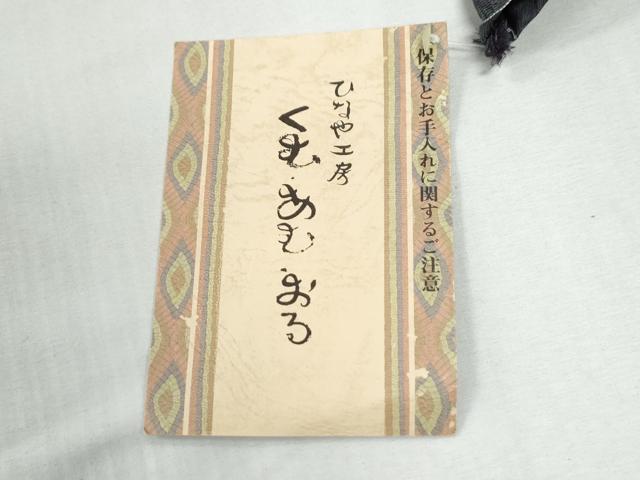 保存とお手入れに関するご注意
ひなや工房
くむ・あむ・おる